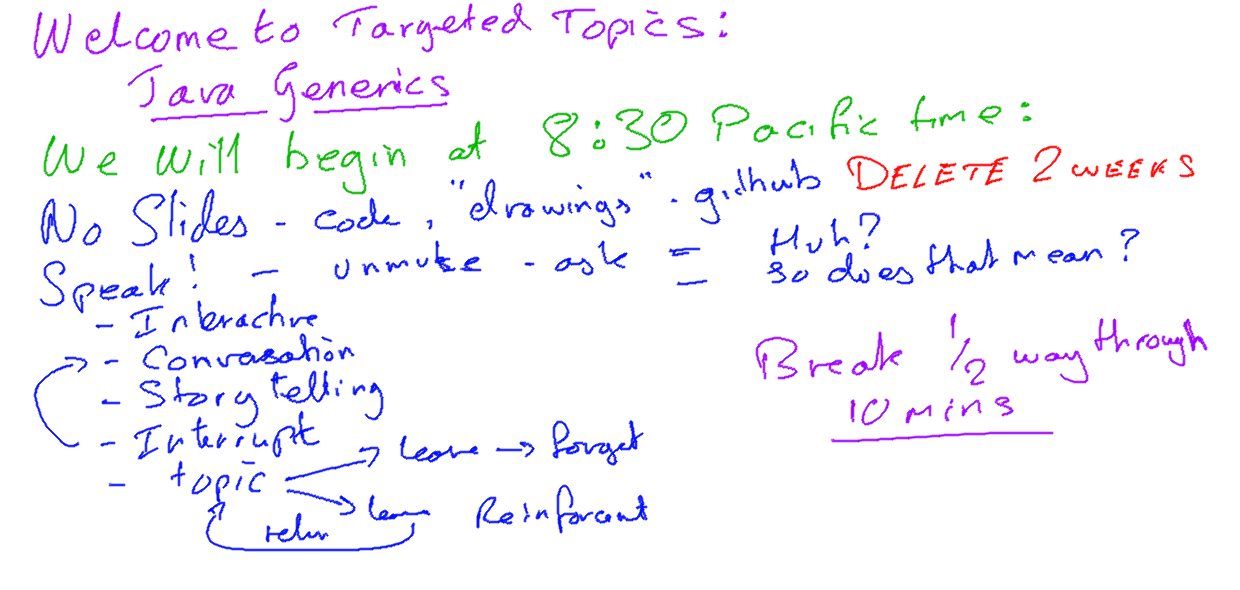 Welcome to Targeted Topics:
Java Generics
We will begin at 8:30 Pacific time:
No Slides - code, "drawings" - github DELETE 2 WEEKS
Speak! - unmute - ask = Huh?
so does that mean?
- Interactive
- Conversation
- Story telling
- Interrupt
- topic → leave → forget
→ leave Reinforcement
return
Break 1/2 way through
10 mins